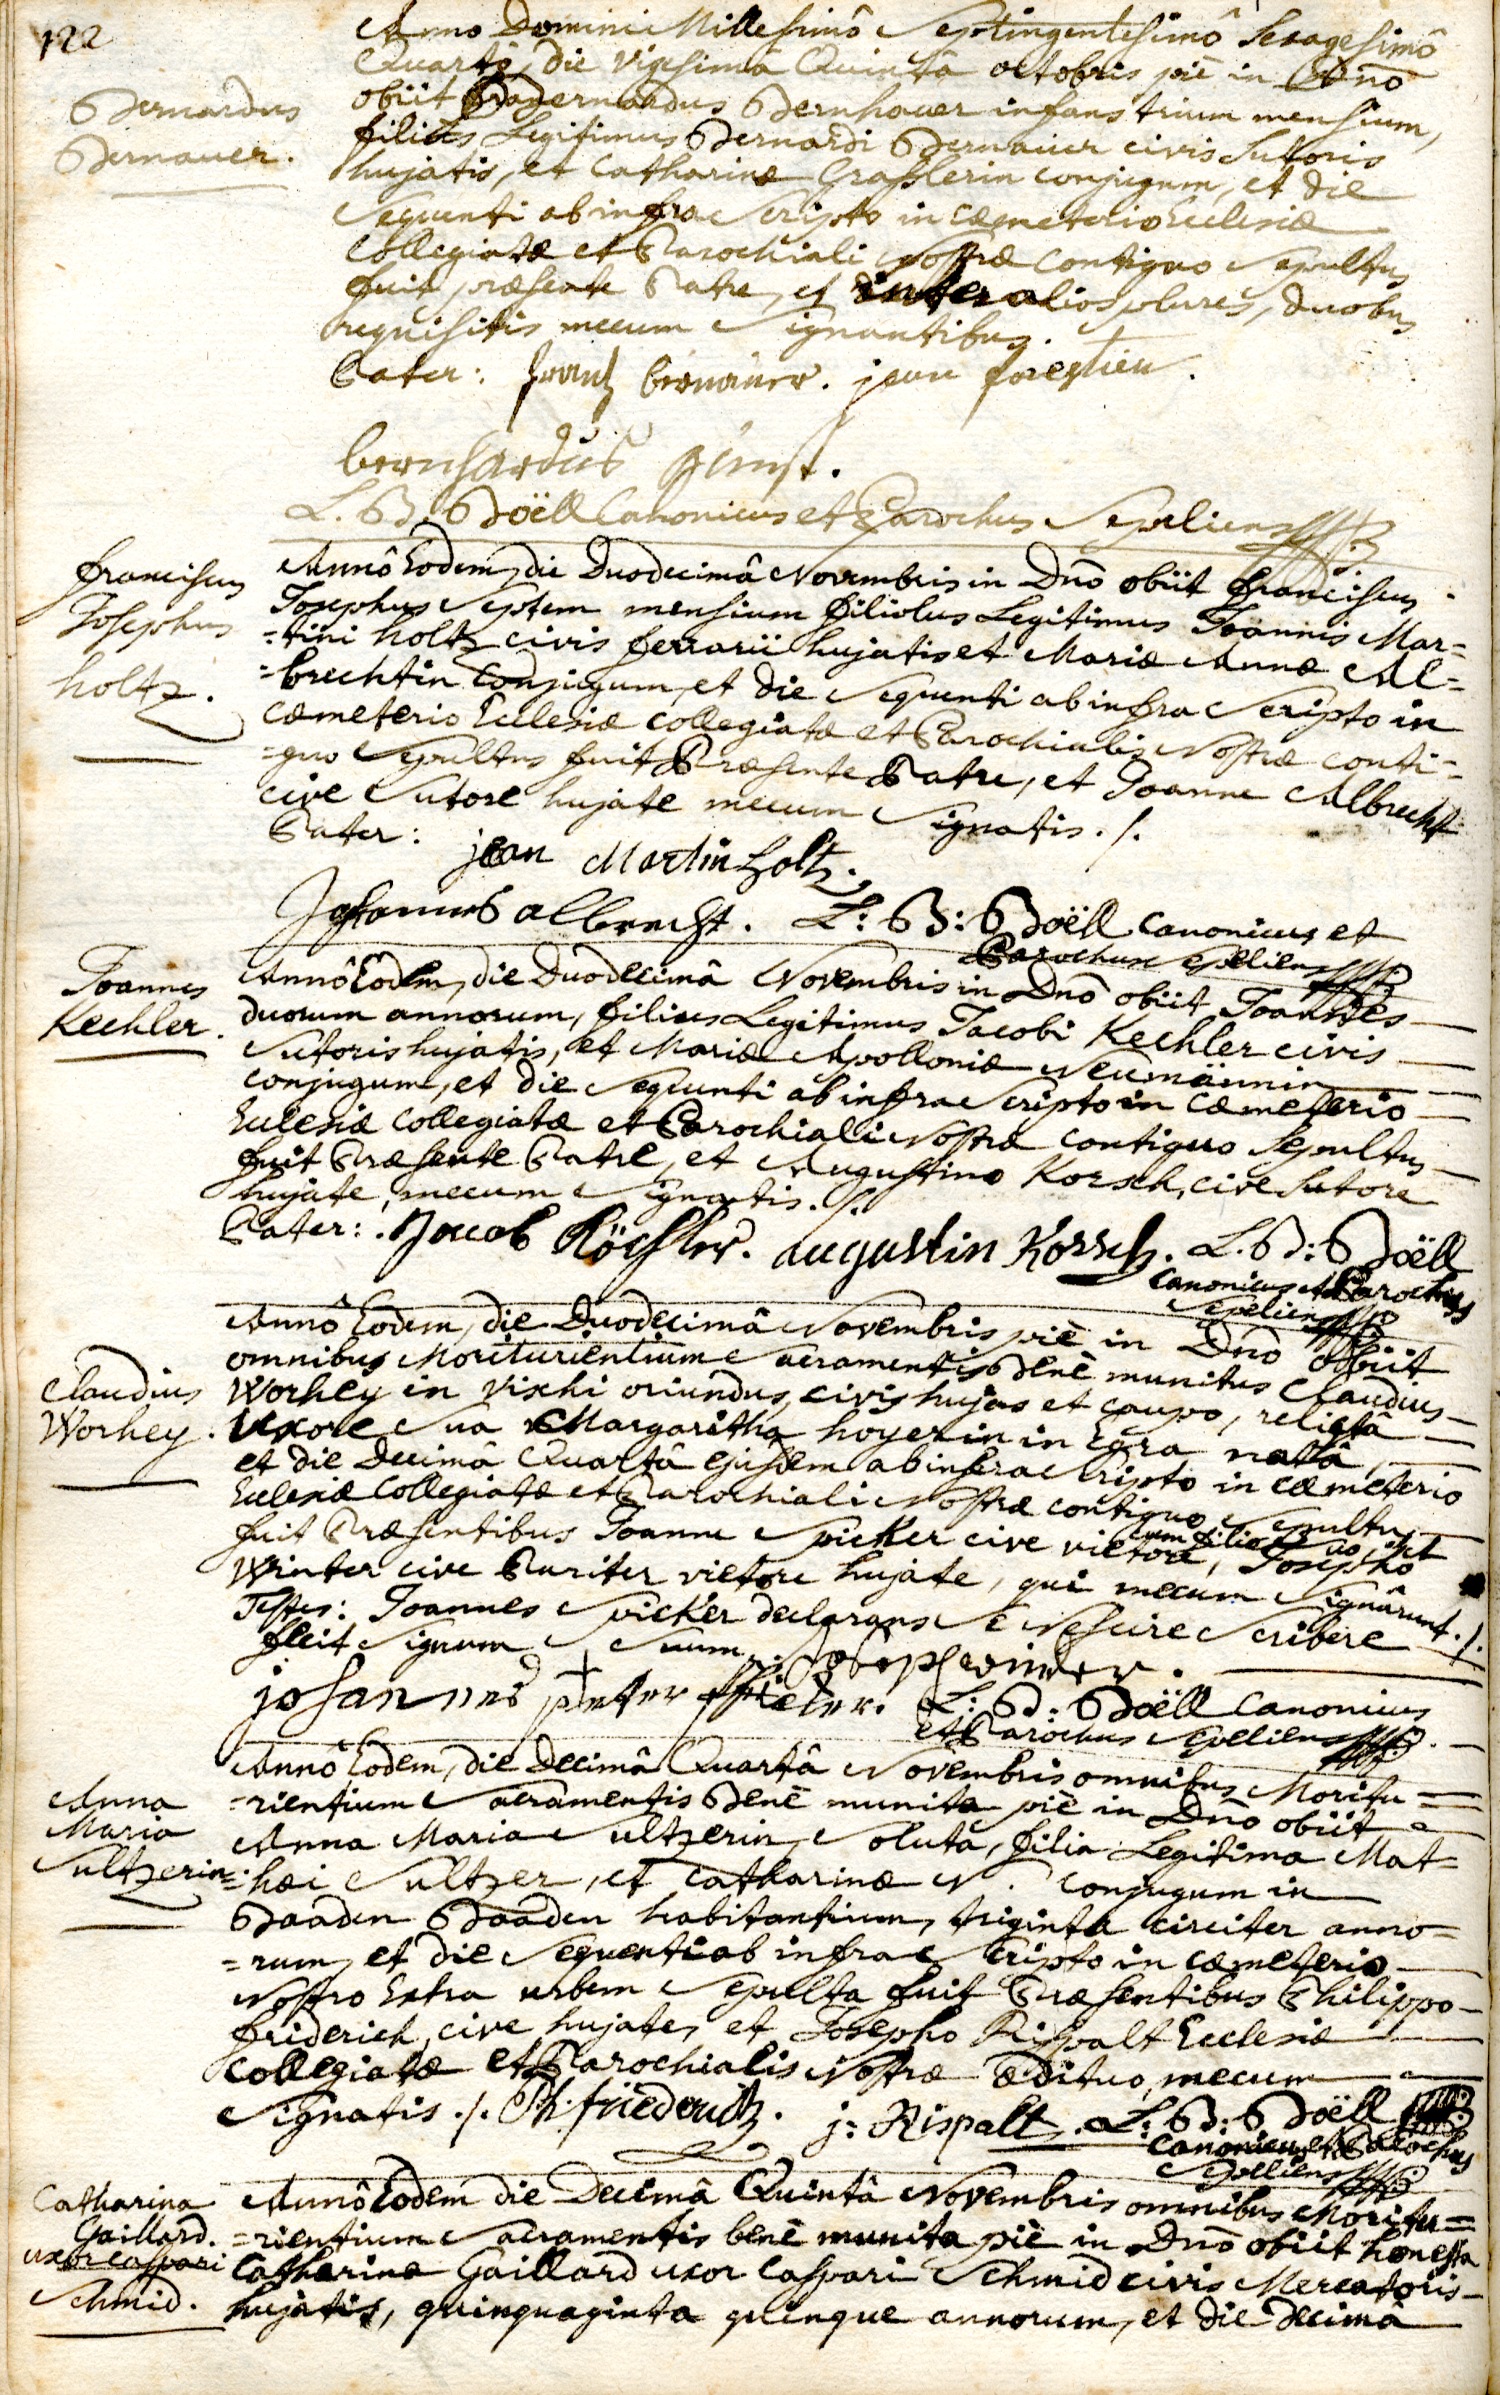 122
Anno Domini Millesimô Septingentesimô Sexagesimô
Quartô, die Vigesima Quinta octobris piè in Dño
Bernardus
Bernauer.
obiit Bernardus Bernhauer infans trium mensium,
filius Legitimus Bernardi Bernauer civis Sutoris
hujatis, et Catharinæ Grasslerin conjugum, et die
Sequenti ab infra Scripto in cæmeterio Ecclesiæ
Collegiatæ et Parochiali Nostræ Contiguo Sepultus
fuit, præsente Patre, et inter alios plures, duobus
requisitis mecum Signantibus.
Pater: frantz bernauer. jean
bernhardus
L. B. Boëll Canonicus et Parochus Sepeliens
franciscus
Josephus
holtz.
Annô Eodem, die Duodecimâ Novembris in Dnō obiit franciscus
Josephus Septem mensium filiolus Legitimus Joannis Mar=
=tini holtz civis ferrarii hujatis et Mariæ Annæ Al=
=brechtin Conjugum, et die Sequenti ab infra Scripto in
Cæmeterio Ecclesiæ Collegiatæ et Parochialis Nostræ conti=
=guo Sepultus fuit Præsente Patre, et Joanne Albrecht
cive Sutore hujate mecum Signatis./.
Pater: jean Martin holtz.
Johannes albrecht. L: B: Boëll Canonicus et
Parochus Sepeliens
Joannes
Kechler.
Annô Eodem, die Duodecimâ Novembris in Dnō obiit Joannes
duorum annorum, filius Legitimus Jacobi Kechler civis
Sutoris hujatis, et Mariæ Apolloniæ Neumännin
conjugum, et die Sequenti ab infra Scripto in Cæmeterio
Ecclesiæ Collegiatæ et Parochiali Nostræ contiguo Sepultus
fuit Præsente Patre, et Augustino Korsch, cive Sutore
hujate, mecum Signatis./.
Pater: Jacob Köchler. augustin Korsch. L. B: Boëll
Canonicus et Parochus
Sepeliens
Claudius
Worhey.
Annô Eodem, die Duodecimâ Novembris piè in Dnō obiit
omnibus Moriturientium Sacramentis benè munitus Claudius
Worhey in Vischi oriundus, civis hujas et caupo, relictâ
Uxore Sua Margaritha hoyerin in Egra natâ,
et die Decimâ Quartâ ejusdem ab infra Scripto in cæmeterio
Ecclesiæ Collegiatæ et Parochiali Nostræ contiguo Sepultus
fuit Præsentibus Joanne Spicker cive vietore, cum filio Suo, et Josepho
Winter cive Pariter vietore hujate, qui mecum Signârunt./.
Testes: Joannes Spicker declarans Se Nescire Scribere
fecit Signum Suum. + Joseph winter.
johannes peter L: B: Boëll Canonicus
et Parochus Sepeliens
Anna
Maria
Sultzerin
Annô Eodem, die Decimâ Quartâ Novembris omnibus Moritu=
=rientium Sacramentis Benè munita piè in Dnō obiit
Anna Maria Sultzerin, Soluta, filia Legitima Mat=
=hæi Sultzer, et Catharinæ N. Conjugum in
Baaden Baaden habitantium, triginta circiter anno=
=rum, et die Sequenti ab infra Scripto in cæmeterio
Nostro Extra urbem Sepulta fuit Præsentibus Philippo
friderich, cive hujate, et Josepho Rispalt Ecclesiæ
Collegiatæ et Parochialis Nostræ ædituo, mecum
Signatis./. Ph. friederich. j: Rispalt. L: B: Boëll
Canonicus et Parochus
Sepeliens
Catharina
Gaillard.
uxor Caspari
Schmid.
Annô Eodem die Decimâ Quintâ Novembris omnibus Moritu=
=rientium Sacramentis benè munita piè in Dnō obiit honesta
Catharina Gaillard uxor Caspari Schmid civis Mercatoris
hujatis, quinquaginta quinque annorum, et die Decimâ